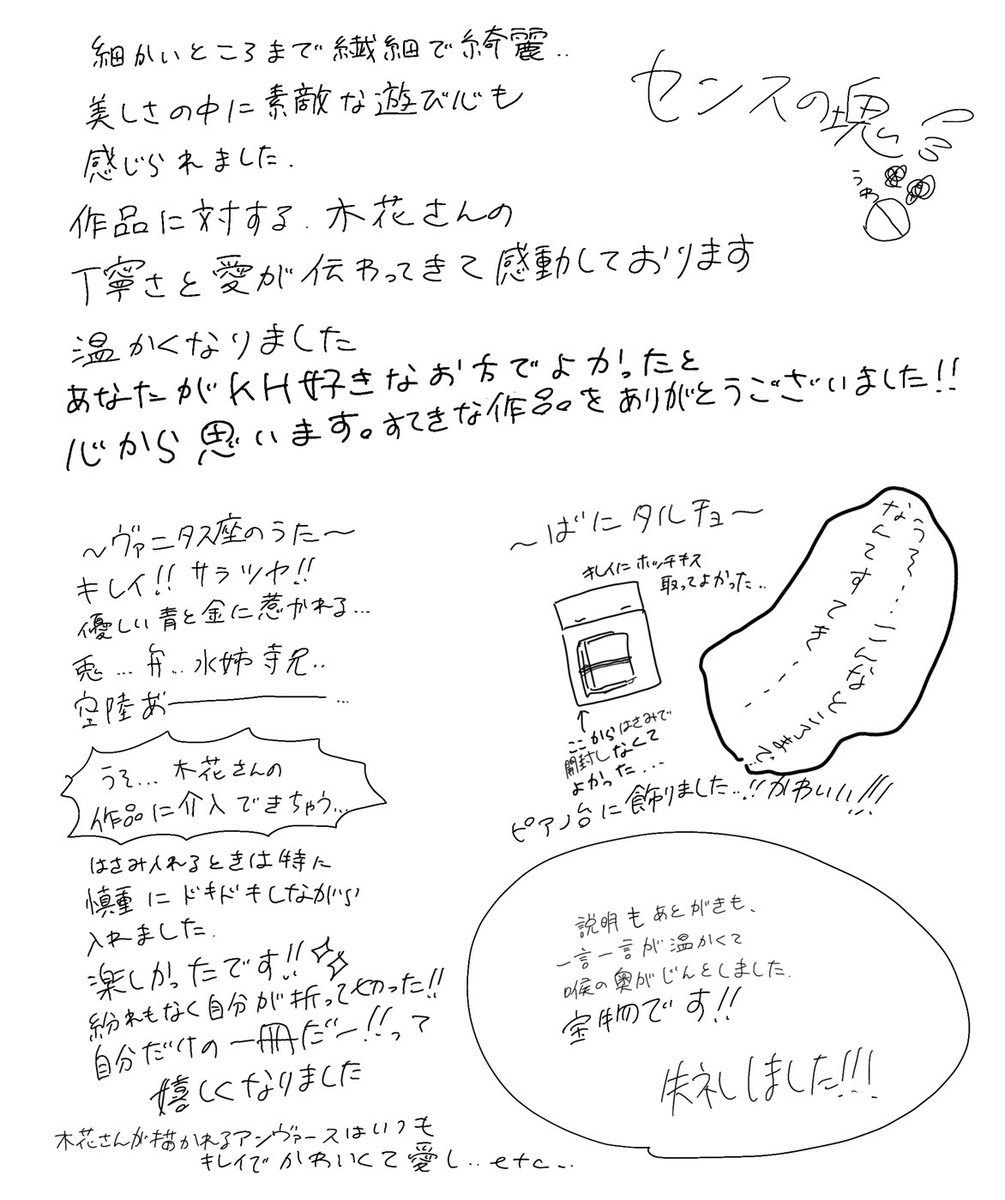 細かいところまで繊細で綺麗..
美しさの中に素敵な遊び心も
感じられました.
作品に対する.木花さんの
丁寧さと愛が伝わってきて感動しております
温かくなりました
あなたがKH好きなお方でよかったと
心から思います。すてきな作品をありがとうございました!!
センスの塊
うわ
～ヴァニタス座のうた～
キレイ!! サラツヤ!!
優しい青と金に惹かれる...
兎...弁..水姉寺兄..
空陸あ゛ー...
うそ...木花さんの
作品に介入できちゃう...
はさみ入れるときは特に
慎重にドキドキしながら
入れました.
楽しかったです!!
紛れもなく自分が折って切った!!
自分だけの一冊だー!!って
嬉しくなりました
木花さんが描かれるアンヴァースはいつも
キレイでかわいくて愛し..etc...
～ばにタルチョ～
キレイにホッチキス
取ってよかった...
ここからはさみで
開封しなくて
よかった...
なうそ...こんなところまで..
なんてすてき....
ピアノ台に飾りました...!!かわいい!!!
説明もあとがきも、
一言一言が温かくて
喉の奥がじんとしました.
宝物です!!
失礼しました!!!